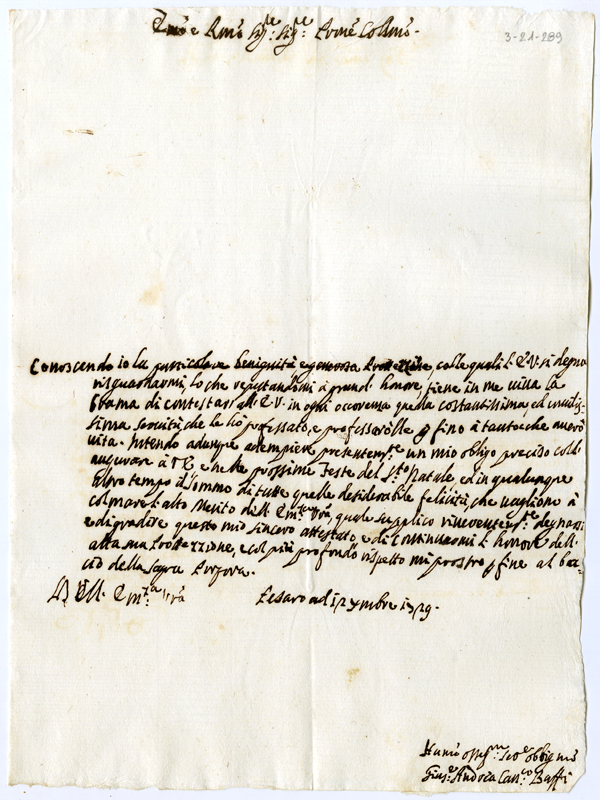 3-21-289
Em̃o e Rmõ Sig.re Sig.re Prone Collmo.
Conoscendo io la particolare benignità e generosa Protezzione, colle quali l'E.V. si degna
risguardarmi, lo che reputandomi à grand' honore, tiene in me viva la
brama di contestar all' E.V. in ogni occorenza quella costantissima, ed umilis-
sima servitù che le hò professato, e professarolle p fino à tanto che averò
vita. Intendo adunque adempiere presentem.te un mio obligo preciso coll'
augurare à VE, e nelle prossime Feste del S.to Natale, ed in qualunque
altro tempo il sommo di tutte quelle desiderabile felicità, che vagliono à
colmare l'alto Merito dell' Em.za Vrã, quale supplico riverentem.te degnarsi
e di gradire questo mio sincero attestato, e di continuarmi l'honore dell'
alta sua Protezzione, e col più profondo rispetto mi prostro p fine al bac-
cio della Sagra Porpora.
D. V. Em.za Vrã Pesaro ad 17 Xmbre 1729.
Humo Seo.e obblig mo
Gius.e Andrea Can.co Baffi